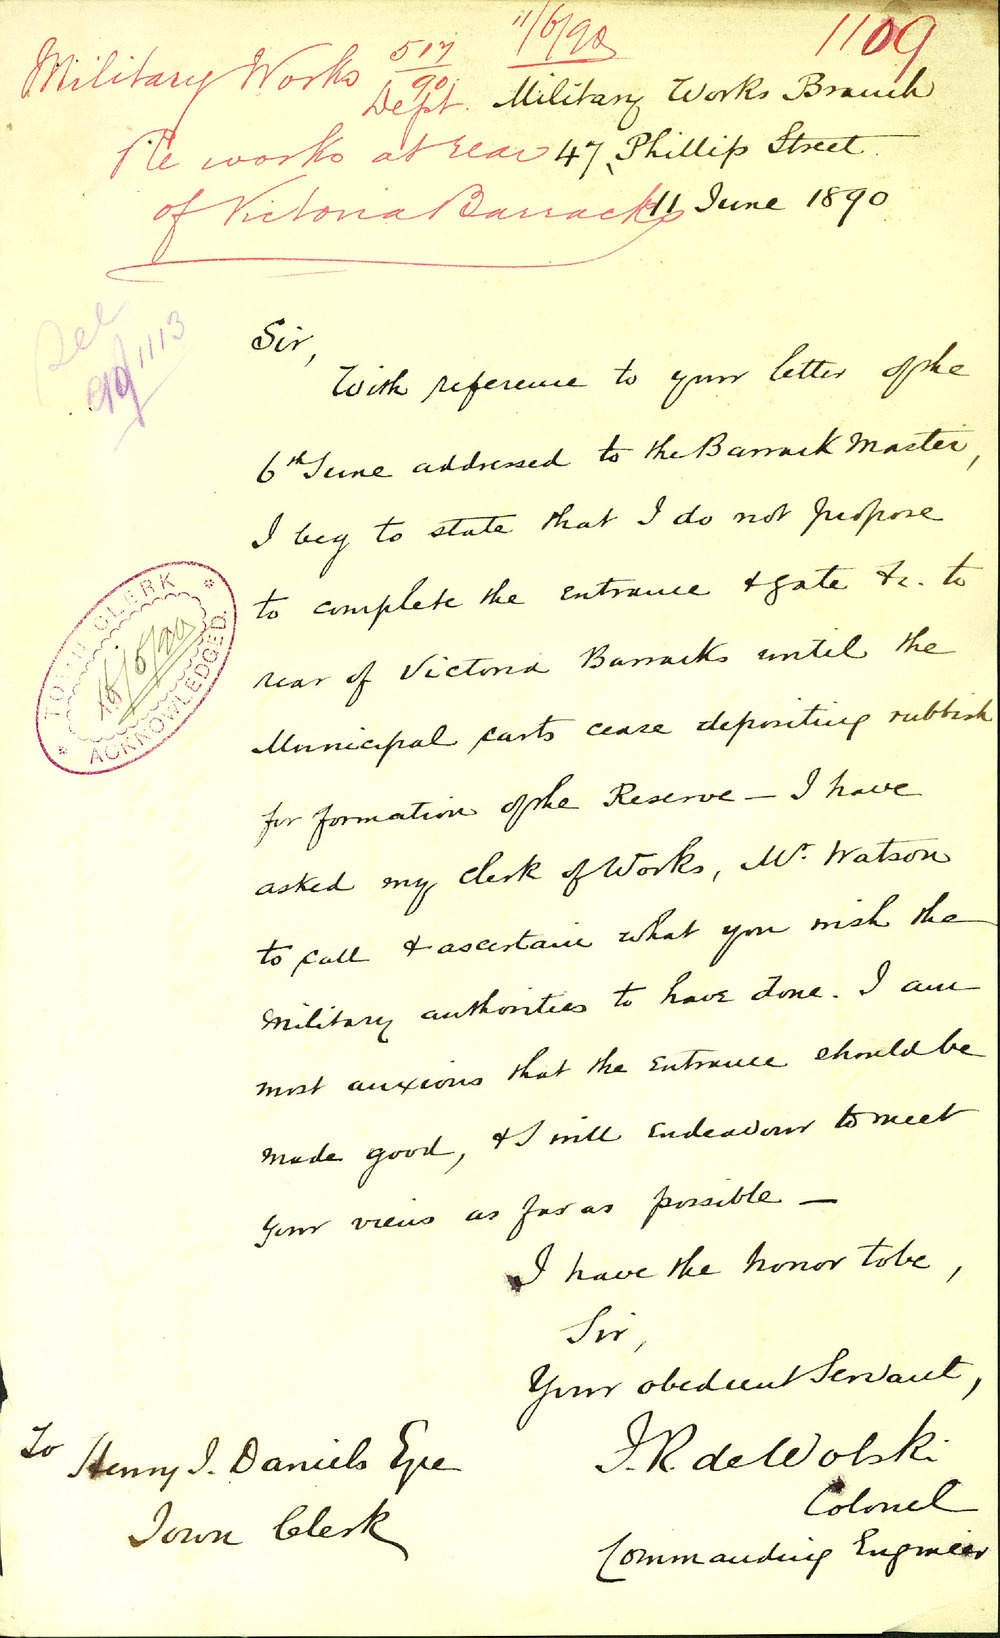 11/6/90
1109
Military Works 517/90
Dept.
Military Works Branch
Re works at rear
47 Phillip Street
of Victoria Barracks
11 June 1890
See
90/1113
Sir,
With reference to your letter of the
6th June addressed to the Barrack Master,
I beg to state that I do not propose
to complete the Entrance & gate &c. to
rear of Victoria Barracks until the
Municipal carts cease depositing rubbish
for formation of the Reserve — I have
asked my Clerk of Works, Mr. Watson
to call & ascertain what you wish the
Military authorities to have done. I am
most anxious that the Entrance should be
made good, & I will Endeavour to meet
your views as far as possible —
I have the honor to be,
Sir,
Your obedient Servant,
F. R. de Wolski
Colonel
Commanding Engineer
To Henry J. Daniels Esqre
Town Clerk
TOWN CLERK
ACKNOWLEDGED.